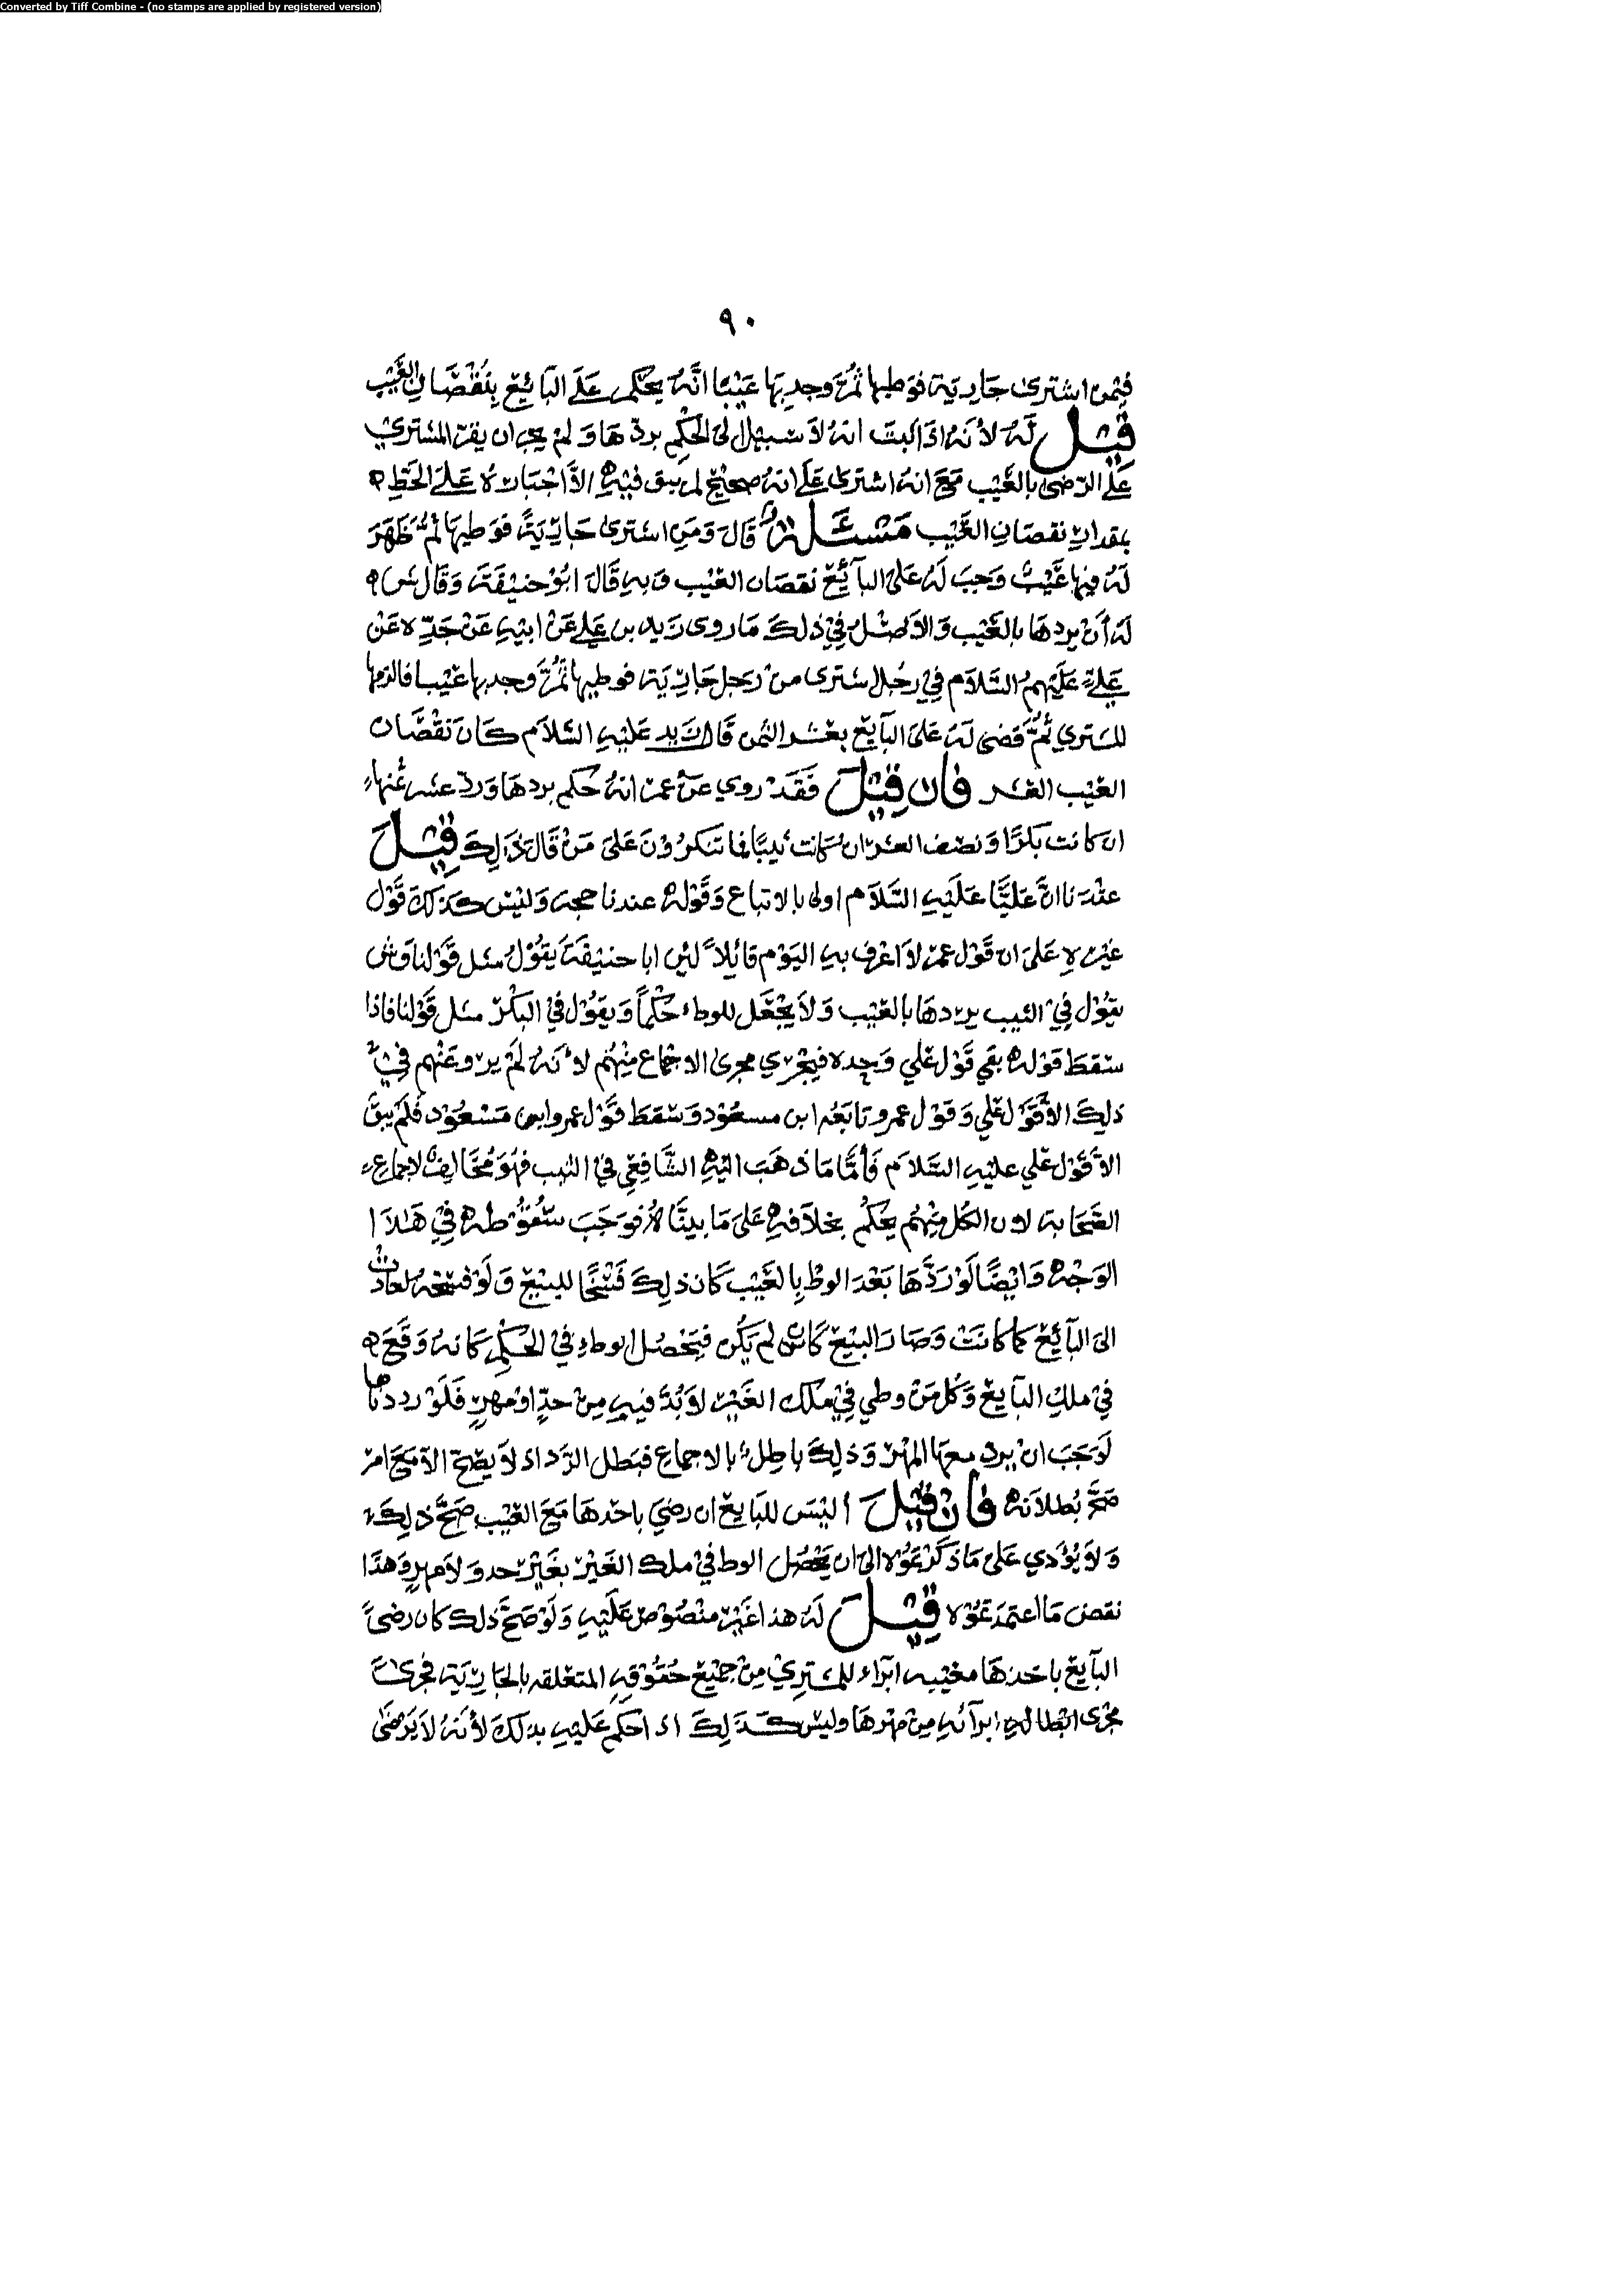 Converted by Tiff Combine - (no stamps are applied by registered version)
٩٠
فيمن اشترى جارية فوطيها ثم وجد بها عيبًا انه يحكم على البائع بنقصان العيب
قيل له لأنه اذا ثبت انه لا سبيل الى الحكم بردها ولم يجز ان يقر المشتري
على الرضى بالعيب مع انه اشترى على انه صحيح لم يبق فيه الا اجباره على الحط
بمقدار نقصان العيب مسئلة قال ومن اشترى جارية فوطيها ثم ظهر
له فيها عيب وجب له على البائع نقصان العيب وبه قال ابو حنيفة وقال ش
له أن يردها بالعيب والاصل في ذلك ما روى زيد بن علي عن ابيه عن جده عن
علي عليهم السلام في رجل اشترى من رجل جارية فوطيها ثم وجد بها عيبا فالزمها
المشتري ثم قضى له على البآيع بعشر الثمن قال زيد عليه السلام كان نقصان
العيب العشر فان قيل فقد روي عن عمر انه حكم بردها ورد عشر ثمنها
ان كانت بكرًا ونصف العشر ان كانت ثيبًا فما تنكرون على من قال ذالك قيل
عندنا ان عليًا عليه السلام اولى بالاتباع وقوله عندنا حجة وليس كذلك قول
غيره على ان قول عمر لا اعرف به اليوم قائلًا لئن ابا حنيفة يقول مثل قولنا وش
يقول في الثيب يردها بالعيب ولا يجعل للوطء حكمًا ويقول في البكر مثل قولنا فاذا
سقط قوله بقي قول علي وحده فيجري مجرى الاجماع منهم لأنه لم يرو عنهم في
ذلك الا قول علي وقول عمر وتابعه ابن مسعود وسقط قول عمر وابن مسعود فلم يبق
الا قول علي عليه السلام فأما ما ذهب اليه الشافعي في الثيب فهو مخالف لاجماع
الصحابة لان الكل منهم يحكم بخلافه على ما بيناه فوجب سقوطه في هاذا
الوجه وايضًا لو ردها بعد الوطْ بالعيب كان ذلك فسخًا للبيع ولو فسخه لعادت
الى البآئع كما كانت وصار البيع كان لم يكن فيحصل الوطء في الحكم كانه وقع
في ملك البآيع وكل من وطي في ملك الغير لا بد فيه من حدٍ او مهرٍ فلو رددناها
لوجب ان يرد معها المهر وذلك باطل بالاجماع فبطل الرد اذ لا يصح الا مع امر
صح بطلانه فان قيل أليس للبايع ان رضي باخذها مع العيب صح ذلك
ولا يؤدي على ما ذكرتموه الى ان يحصل الوط في ملك الغير بغير حد ولا مهر وهذا
نقض ما اعتمدتموه قيل له هذا غير منصوص عليه ولو صح ذلك كان رضى
البآيع باخذها معيبه ابرآء للمشتري من جميع حقوقه المتعلقه بالجارية فجرى
مجرى ابطاله ابرآئه من مهرها وليس كذلك اذا حكم عليه بذلك لأنه لا يرضى